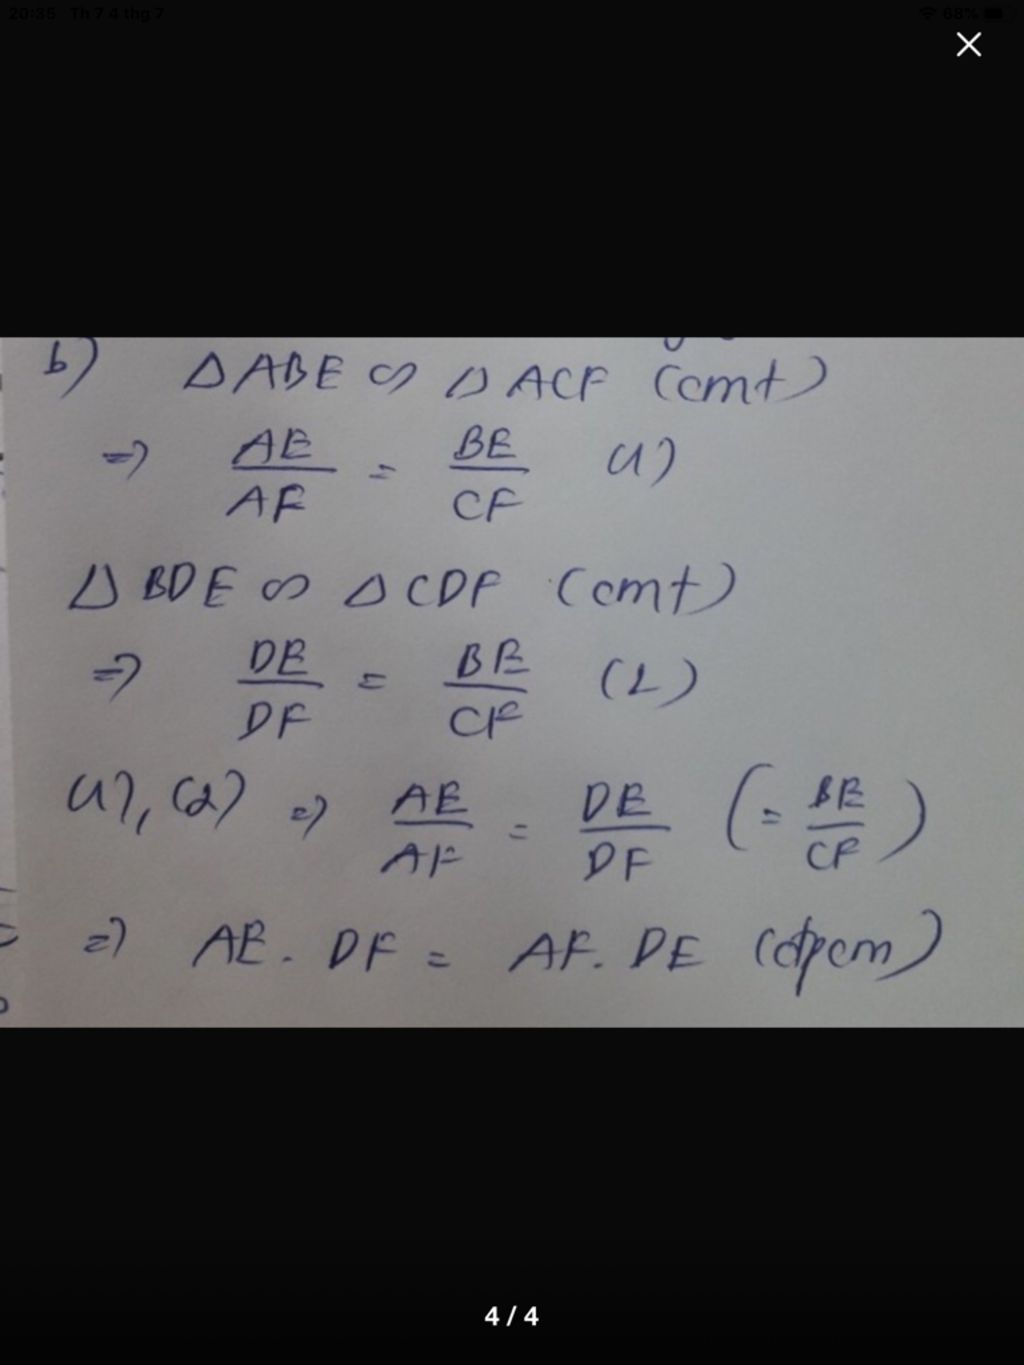 20:35 Th 7 4 thg 7 68%
b) ΔABE ∽ ΔACF (cmt)
=> AE/AF = BE/CF (1)
ΔBDE ∽ ΔCDF (cmt)
=> DE/DF = BE/CF (2)
(1), (2) => AE/AF = DE/DF (= BE/CF)
=> AE . DF = AF. DE (đpcm)
4 / 4